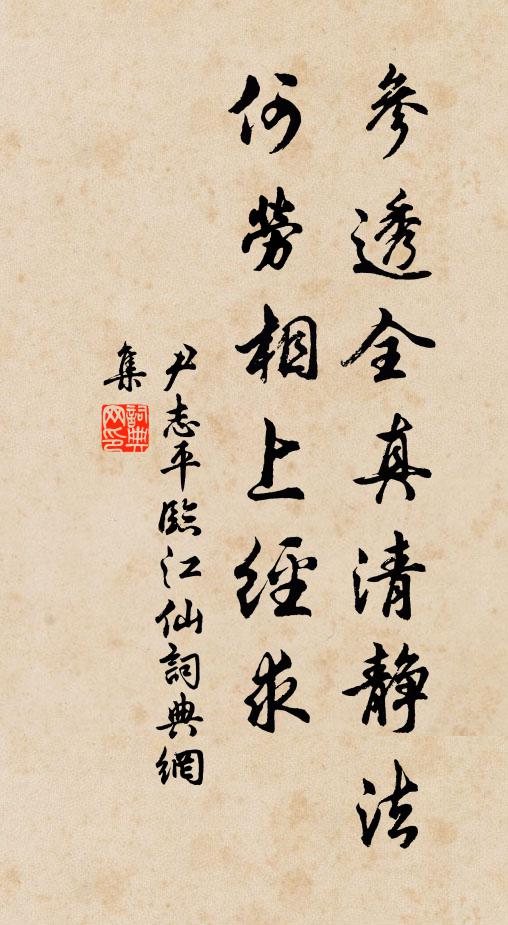 參透全真清靜法
何勞相上經求
尹志平臨江仙詞典網
集
詞典网印